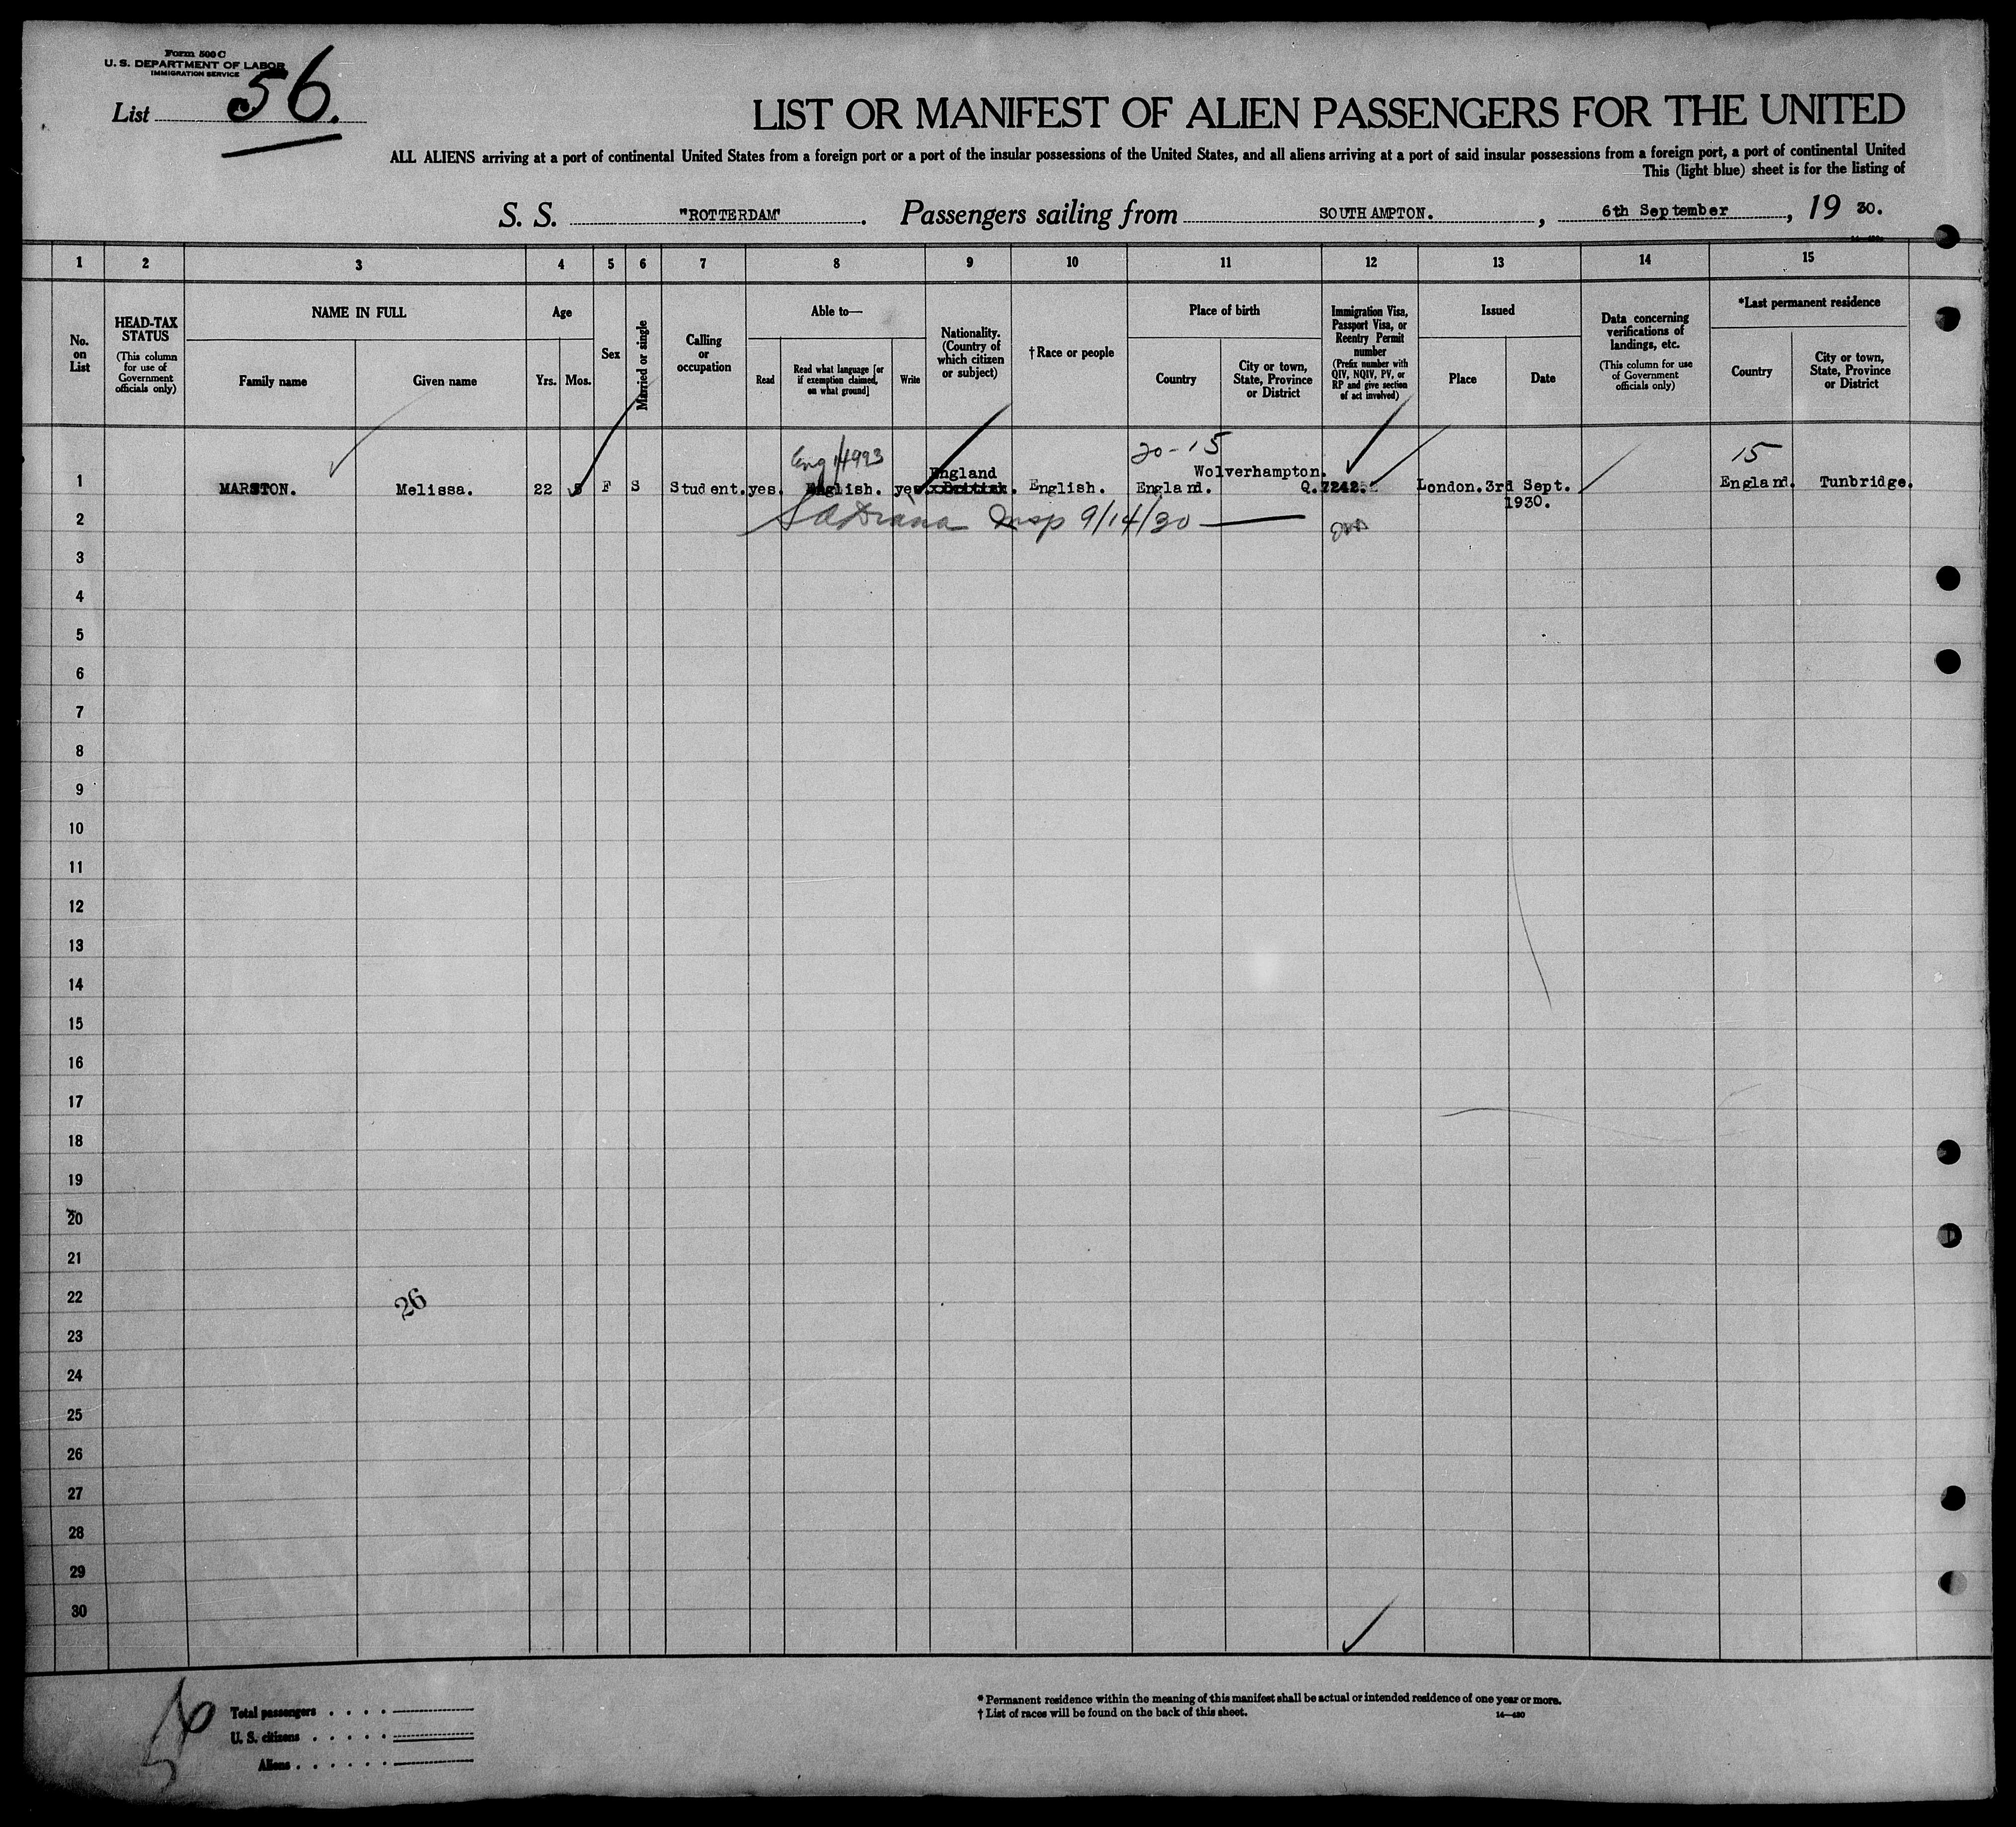 Form 500 C
U. S. DEPARTMENT OF LABOR
IMMIGRATION SERVICE
List 56.
LIST OR MANIFEST OF ALIEN PASSENGERS FOR THE UNITED
ALL ALIENS arriving at a port of continental United States from a foreign port or a port of the insular possessions of the United States, and all aliens arriving at a port of said insular possessions from a foreign port, a port of continental United
This (light blue) sheet is for the listing of
S. S. "ROTTERDAM" . Passengers sailing from SOUTHAMPTON. , 6th September , 19 30.
1 2 3 4 5 6 7 8 9 10 11 12 13 14 15
No. on List
HEAD-TAX STATUS
(This column for use of Government officials only)
NAME IN FULL
Family name
Given name
Age
Yrs. Mos.
Sex
Married or single
Calling or occupation
Able to—
Read
Read what language [or if exemption claimed, on what ground]
Write
Nationality. (Country of which citizen or subject)
† Race or people
Place of birth
Country
City or town, State, Province or District
Immigration Visa, Passport Visa, or Reentry Permit number
(Prefix number with QIV, NQIV, PV, or RP and give section of act involved)
Issued
Place
Date
Data concerning verifications of landings, etc.
(This column for use of Government officials only)
*Last permanent residence
Country
City or town, State, Province or District
Eng 20-15 15
England Wolverhampton.
1 MARSTON. Melissa. 22 5 F S Student. yes. English. yes. British. English. England. Q.7242. London. 3rd Sept. 1930. England. Tunbridge.
2 Insp 9/14/30
3
4
5
6
7
8
9
10
11
12
13
14
15
16
17
18
19
20
21
22
26
23
24
25
26
27
28
29
30
Total passengers
U. S. citizens
Aliens
* Permanent residence within the meaning of this manifest shall be actual or intended residence of one year or more.
† List of races will be found on the back of this sheet.
14—480